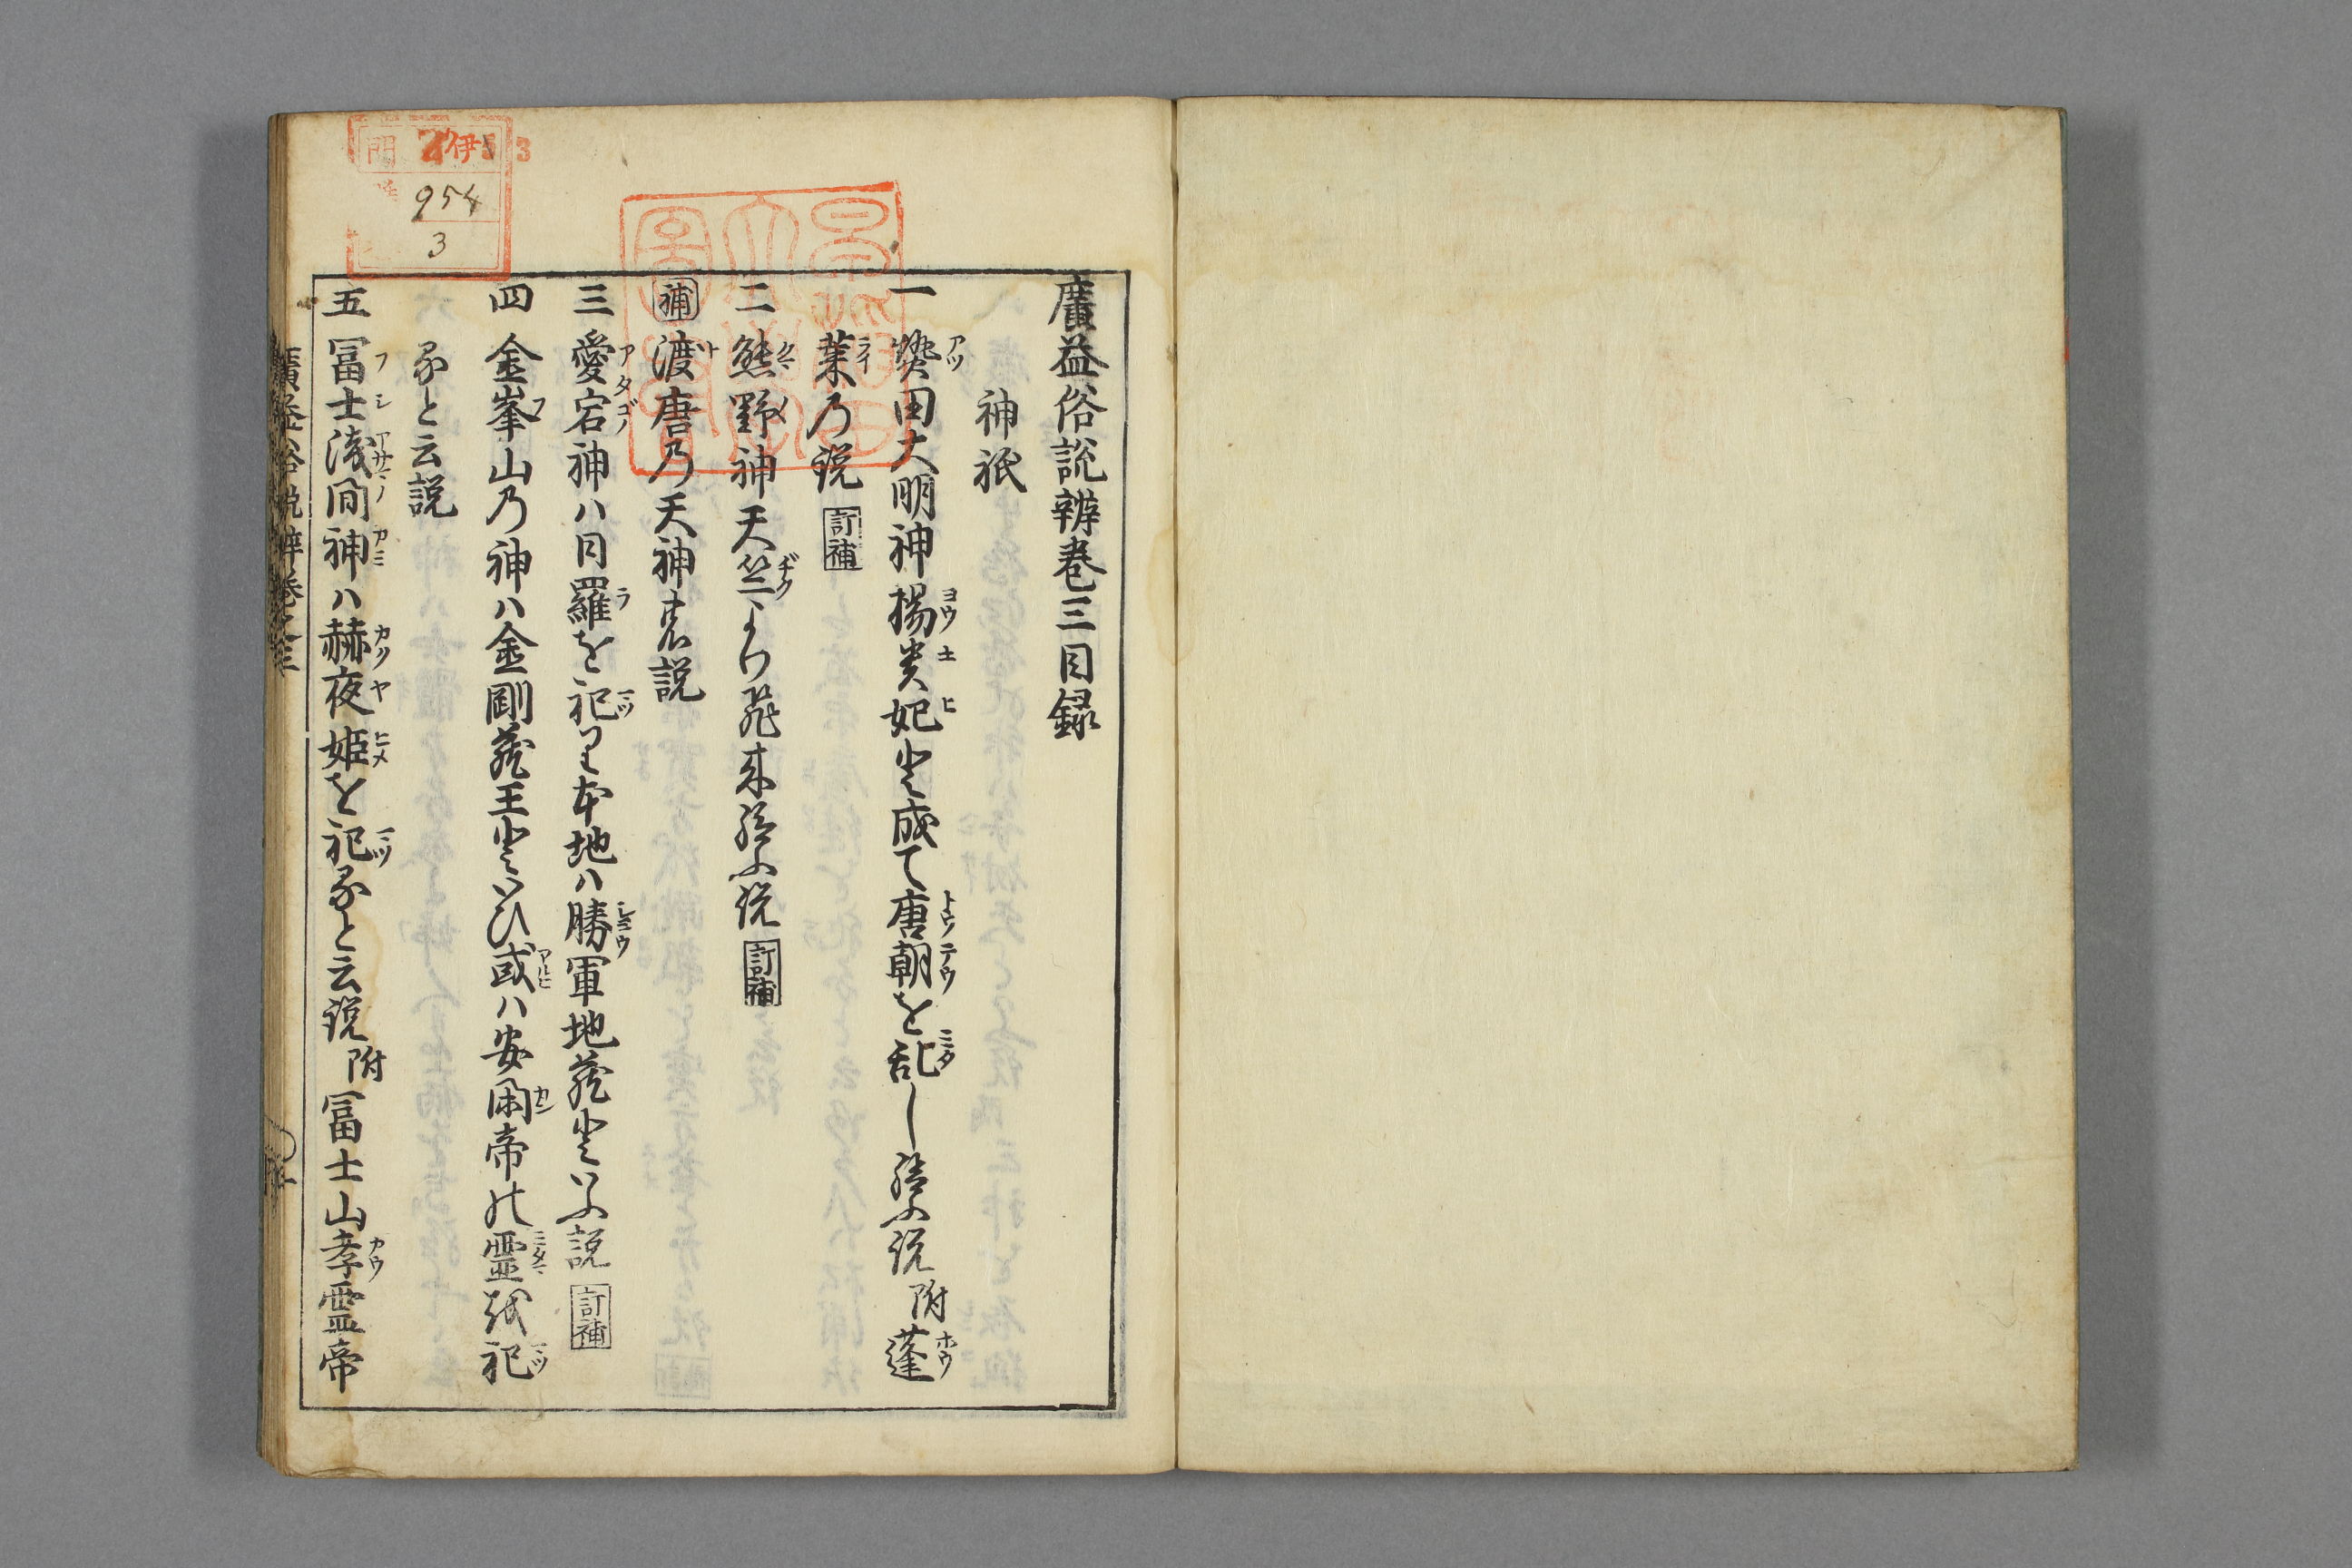 廣益俗説辨巻三目録
神祇
一 熱田大明神楊貴妃と成て唐朝を乱し給ふ説 附 蓬
莱乃説 訂補
二 熊野神天竺より飛来給ふ説 訂補
補 渡唐乃天神の説
三 愛宕神ハ日羅を祀りて本地ハ勝軍地蔵といふ説 訂補
四 金峯山乃神ハ金剛蔵王といひ或ハ安閑帝の霊を祀
ると云説
五 冨士浅間神ハ赫夜姫を祀ると云説 附 冨士山孝霊帝
廣益俗説辨巻之三
門 伊 3
954
3